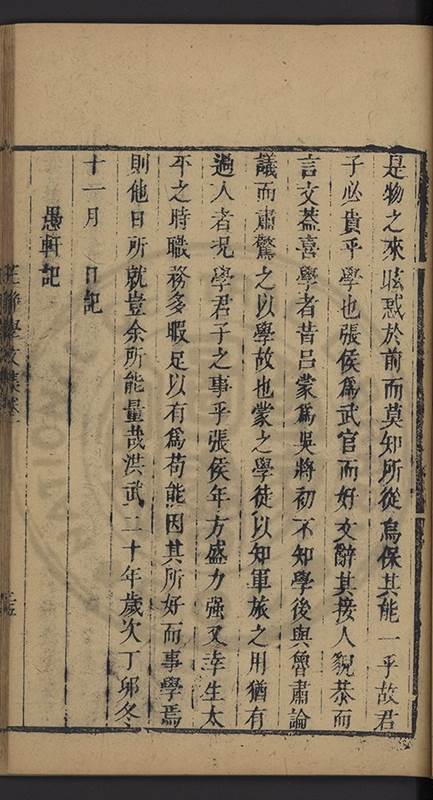 是物之來眩惑於前而莫知所從烏保其能一乎故君
子必貴乎學也張侯爲武官而好文辭其接人貌恭而
言文蓋喜學者昔呂蒙爲吳將初不知學後與魯肅論
議而肅驚之以學故也蒙之學徒以知軍旅之用猶有
過人者況學君子之事乎張侯年方盛力强又幸生太
平之時職務多暇足以有爲苟能因其所好而事學焉
則他日所就豈余所能量哉洪武二十年歲次丁卯冬
十一月 日記
愚軒記